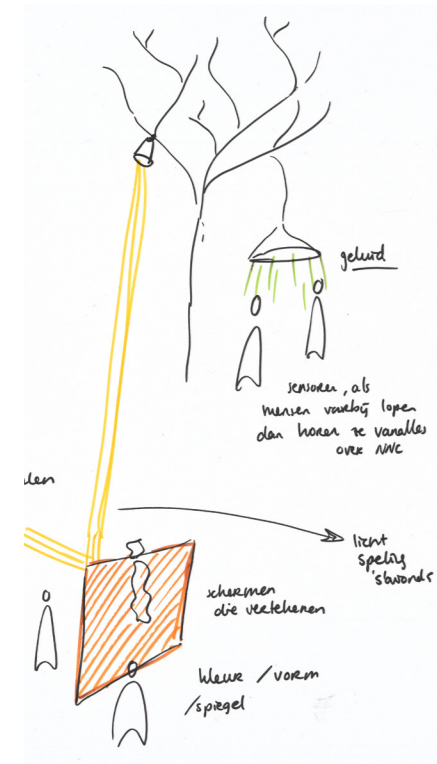 geluid
sensoren, als
mensen voorbij lopen
dan horen ze vanalles
over NNC
len
licht
speling
'savonds
schermen
die vertekenen
kleur / vorm
/spiegel